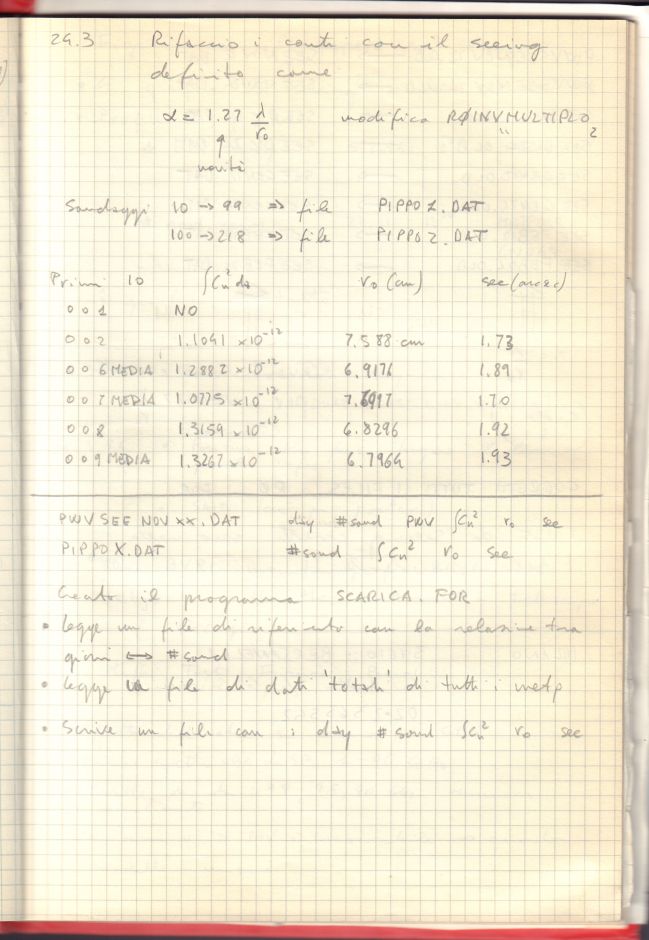 29.3 Rifaccio i conti con il seeing
definito come
α = 1.27 λ/r₀ modifica RØINVMULTIPLO
novità 2
Sondaggi 10 → 99 ⇒ file PIPPO1.DAT
100 → 218 ⇒ file PIPPO2.DAT
Primi 10 ∫Cn² ds r₀ (cm) see (arcsec)
001 NO
002 1.1041 ×10⁻¹² 7.588 cm 1.73
006 MEDIA 1.2882 ×10⁻¹² 6.9176 1.89
007 MEDIA 1.0775 ×10⁻¹² 7.6997 1.70
008 1.3159 ×10⁻¹² 6.8296 1.92
009 MEDIA 1.3267 ×10⁻¹² 6.7964 1.93
PWVSEENOVXX.DAT day #sond PWV ∫Cn² r₀ see
PIPPOX.DAT #sond ∫Cn² r₀ see
Creato il programma SCARICA.FOR
• legge un file di riferimento con la relazione tra
giorni ↔ #sond
• legge un file di dati 'totali' di tutti i
• Scrive un file con i day #sond ∫Cn² r₀ see